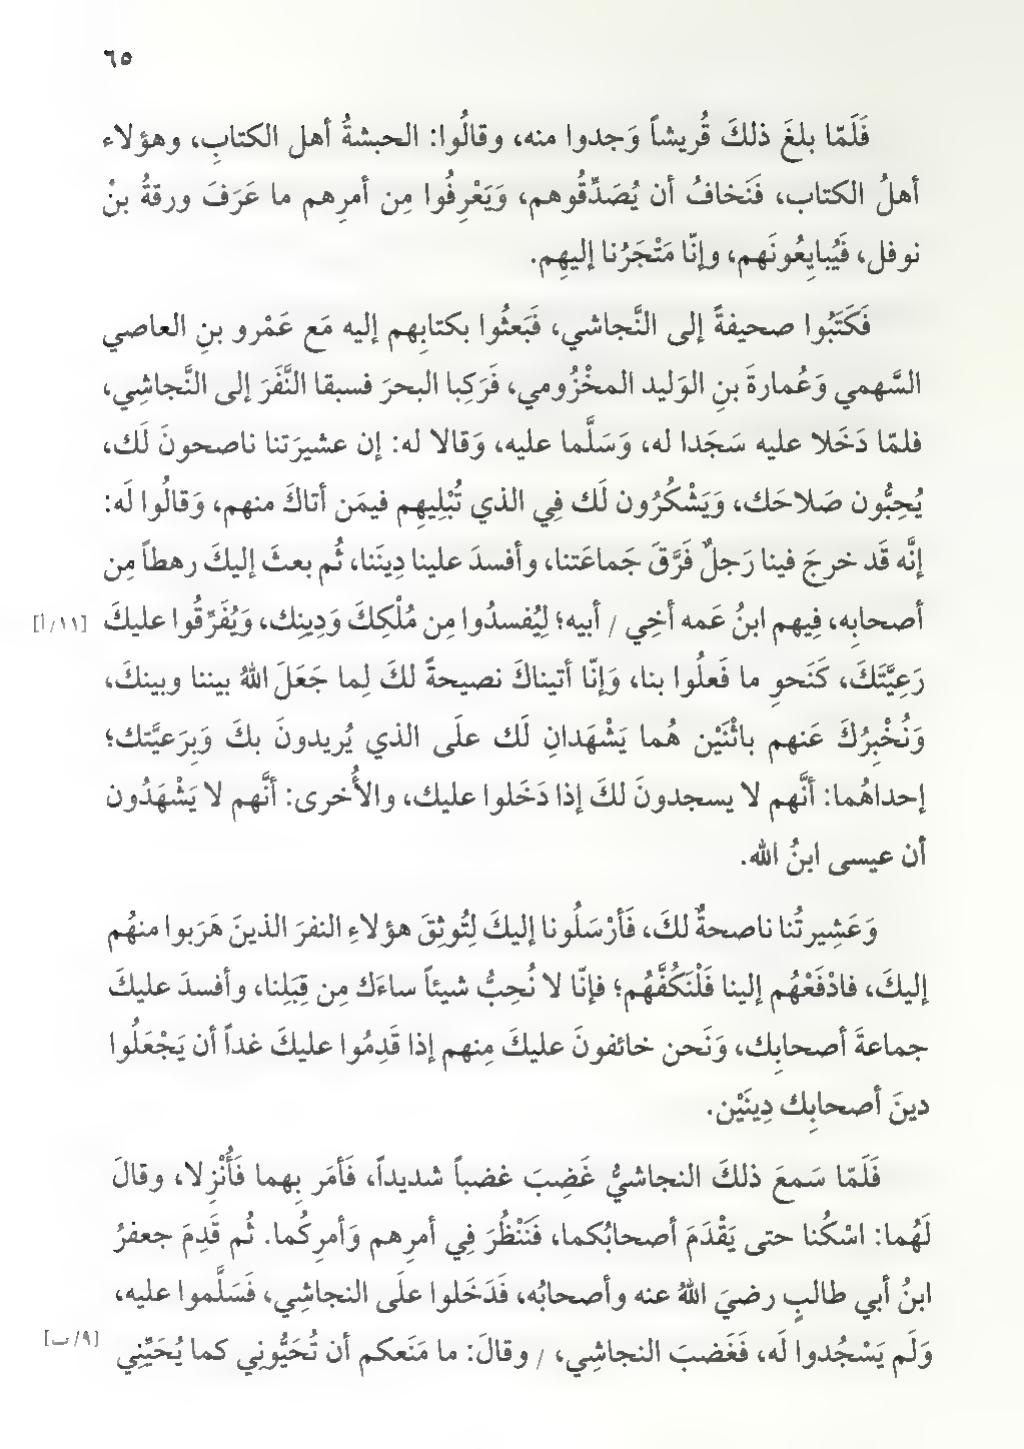 ٦٥
فَلَمّا بلغَ ذلكَ قُريشاً وَجدوا منه، وقالُوا: الحبشةُ أهل الكتابِ، وهؤلاء
أهلُ الكتاب، فَنَخافُ أن يُصَدِّقُوهم، وَيَعْرِفُوا مِن أمرِهم ما عَرَفَ ورقةُ بنُ
نوفل، فَيُبايِعُونَهم، وإنّا مَتْجَرُنا إليهِم.
فَكَتَبُوا صحيفةً إلى النَّجاشي، فَبَعثُوا بكتابِهم إليه مَع عَمْرو بنِ العاصي
السَّهمي وَعُمارةَ بنِ الوَليد المخْزُومي، فَرَكِبا البحرَ فسبقا النَّفَرَ إلى النَّجاشِي،
فلمّا دَخَلا عليه سَجَدا له، وَسَلَّما عليه، وَقالا له: إن عشيرَتنا ناصحونَ لَك،
يُحِبُّون صَلاحَك، وَيَشْكُرُون لَك فِي الذي تُبْلِيهِم فيمَن أتاكَ منهم، وَقالُوا لَه:
إنَّه قَد خرجَ فينا رَجلٌ فَرَّقَ جَماعَتنا، وأفسدَ علينا دِينَنا، ثُم بعثَ إليكَ رهطاً مِن
أصحابِه، فِيهم ابنُ عَمه أخِي / أبيه؛ لِيُفسدُوا مِن مُلْكِكَ وَدِينِك، وَيُفَرِّقُوا عليكَ [١١/أ]
رَعِيَّتَكَ، كَنَحوِ ما فَعلُوا بنا، وَإنّا أتيناكَ نصيحةً لكَ لِما جَعَلَ اللهُ بيننا وبينكَ،
وَنُخْبِرُكَ عَنهم باثْنَيْن هُما يَشْهَدانِ لَك علَى الذي يُريدونَ بكَ وَبِرَعيَّتك؛
إحداهُما: أنَّهم لا يسجدونَ لكَ إذا دَخَلوا عليك، والأُخرى: أنَّهم لا يَشْهَدُون
أن عيسى ابنُ الله.
وَعَشِيرتُنا ناصحةٌ لكَ، فَأرْسَلُونا إليكَ لِتُوثِقَ هؤلاءِ النفرَ الذينَ هَرَبوا منهُم
إليكَ، فادْفَعْهُم إلينا فَلْنَكُفَّهُم؛ فإنّا لا نُحِبُّ شيئاً ساءَك مِن قِبَلِنا، وأفسدَ عليكَ
جماعةَ أصحابِك، وَنَحن خائفونَ عليكَ مِنهم إذا قَدِمُوا عليكَ غداً أن يَجْعَلُوا
دينَ أصحابِك دِينَيْن.
فَلَمّا سَمعَ ذلكَ النجاشيُّ غَضِبَ غضباً شديداً، فَأمَر بِهما فَأُنْزِلا، وقالَ
لَهُما: اسْكُنا حتى يَقْدَمَ أصحابُكما، فَنَنْظُرَ فِي أمرِهم وَأمرِكُما. ثُم قَدِمَ جعفرُ
ابنُ أبي طالبٍ رضيَ اللهُ عنه وأصحابُه، فَدَخَلوا علَى النجاشِي، فَسَلَّموا عليه،
وَلَم يَسْجُدوا لَه، فَغَضبَ النجاشِي، / وقالَ: ما مَنَعكم أن تُحَيُّونِي كما يُحَيِّنِي [٩/ب]